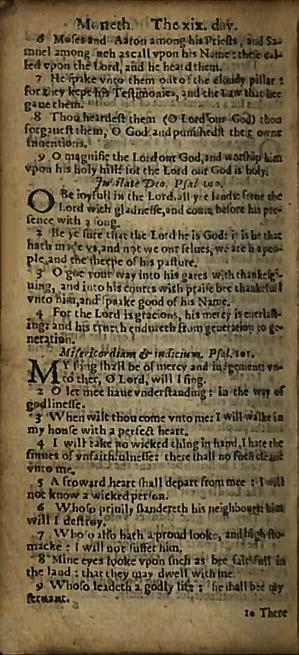 Moneth. The xix. day.
6 Moses and Aaron among his Priests, and Sa-
muel among such as call vpon his Name: these cal-
led vpon the Lord, and he heard them.
7 He spake vnto them out of the cloudy pillar :
for they kept his Testimonies, and the Law that hee
gaue them.
8 Thou heardest them (O Lord our God) thou
forgauest them, O God, and punishedst their owne
inuentions.
9 O magnifie the Lord our God, and worship him
vpon his holy hill: for the Lord our God is holy.
Iubilate Deo. Psal 100.
O Be ioyfull in the Lord, all ye lands: serue the
Lord with gladnesse, and come before his pre-
sence with a song.
2 Be ye sure that the Lord he is God: it is he that
hath made vs, and not we our selues, we are his peo-
ple, and the sheepe of his pasture.
3 O goe your way into his gates with thanksgi-
uing, and into his courts with praise: bee thankefull
vnto him, and speake good of his Name.
4 For the Lord is gracious, his mercy is euerlast-
ing: and his trueth endureth from generation to ge-
neration.
Misericordiam & iudicium. Psal. 101.
MY song shall be of mercy and iudgement: vn-
to thee, O Lord, will I sing.
2 O let mee haue vnderstanding : in the way of
godlinesse.
3 When wilt thou come vnto me: I will walke in
my house with a perfect heart.
4 I will take no wicked thing in hand, I hate the
sinnes of vnfaithfulnesse: there shall no such cleaue
vnto me.
5 A froward heart shall depart from mee : I will
not know a wicked person.
6 Whoso priuily slandereth his neighbour: him
will I destroy.
7 Whoso also hath a proud looke, and high sto-
macke : I will not suffer him.
8 Mine eyes looke vpon such as bee faithfull in
the land : that they may dwell with me.
9 Whoso leadeth a godly life : he shall bee my
seruant.
10 There